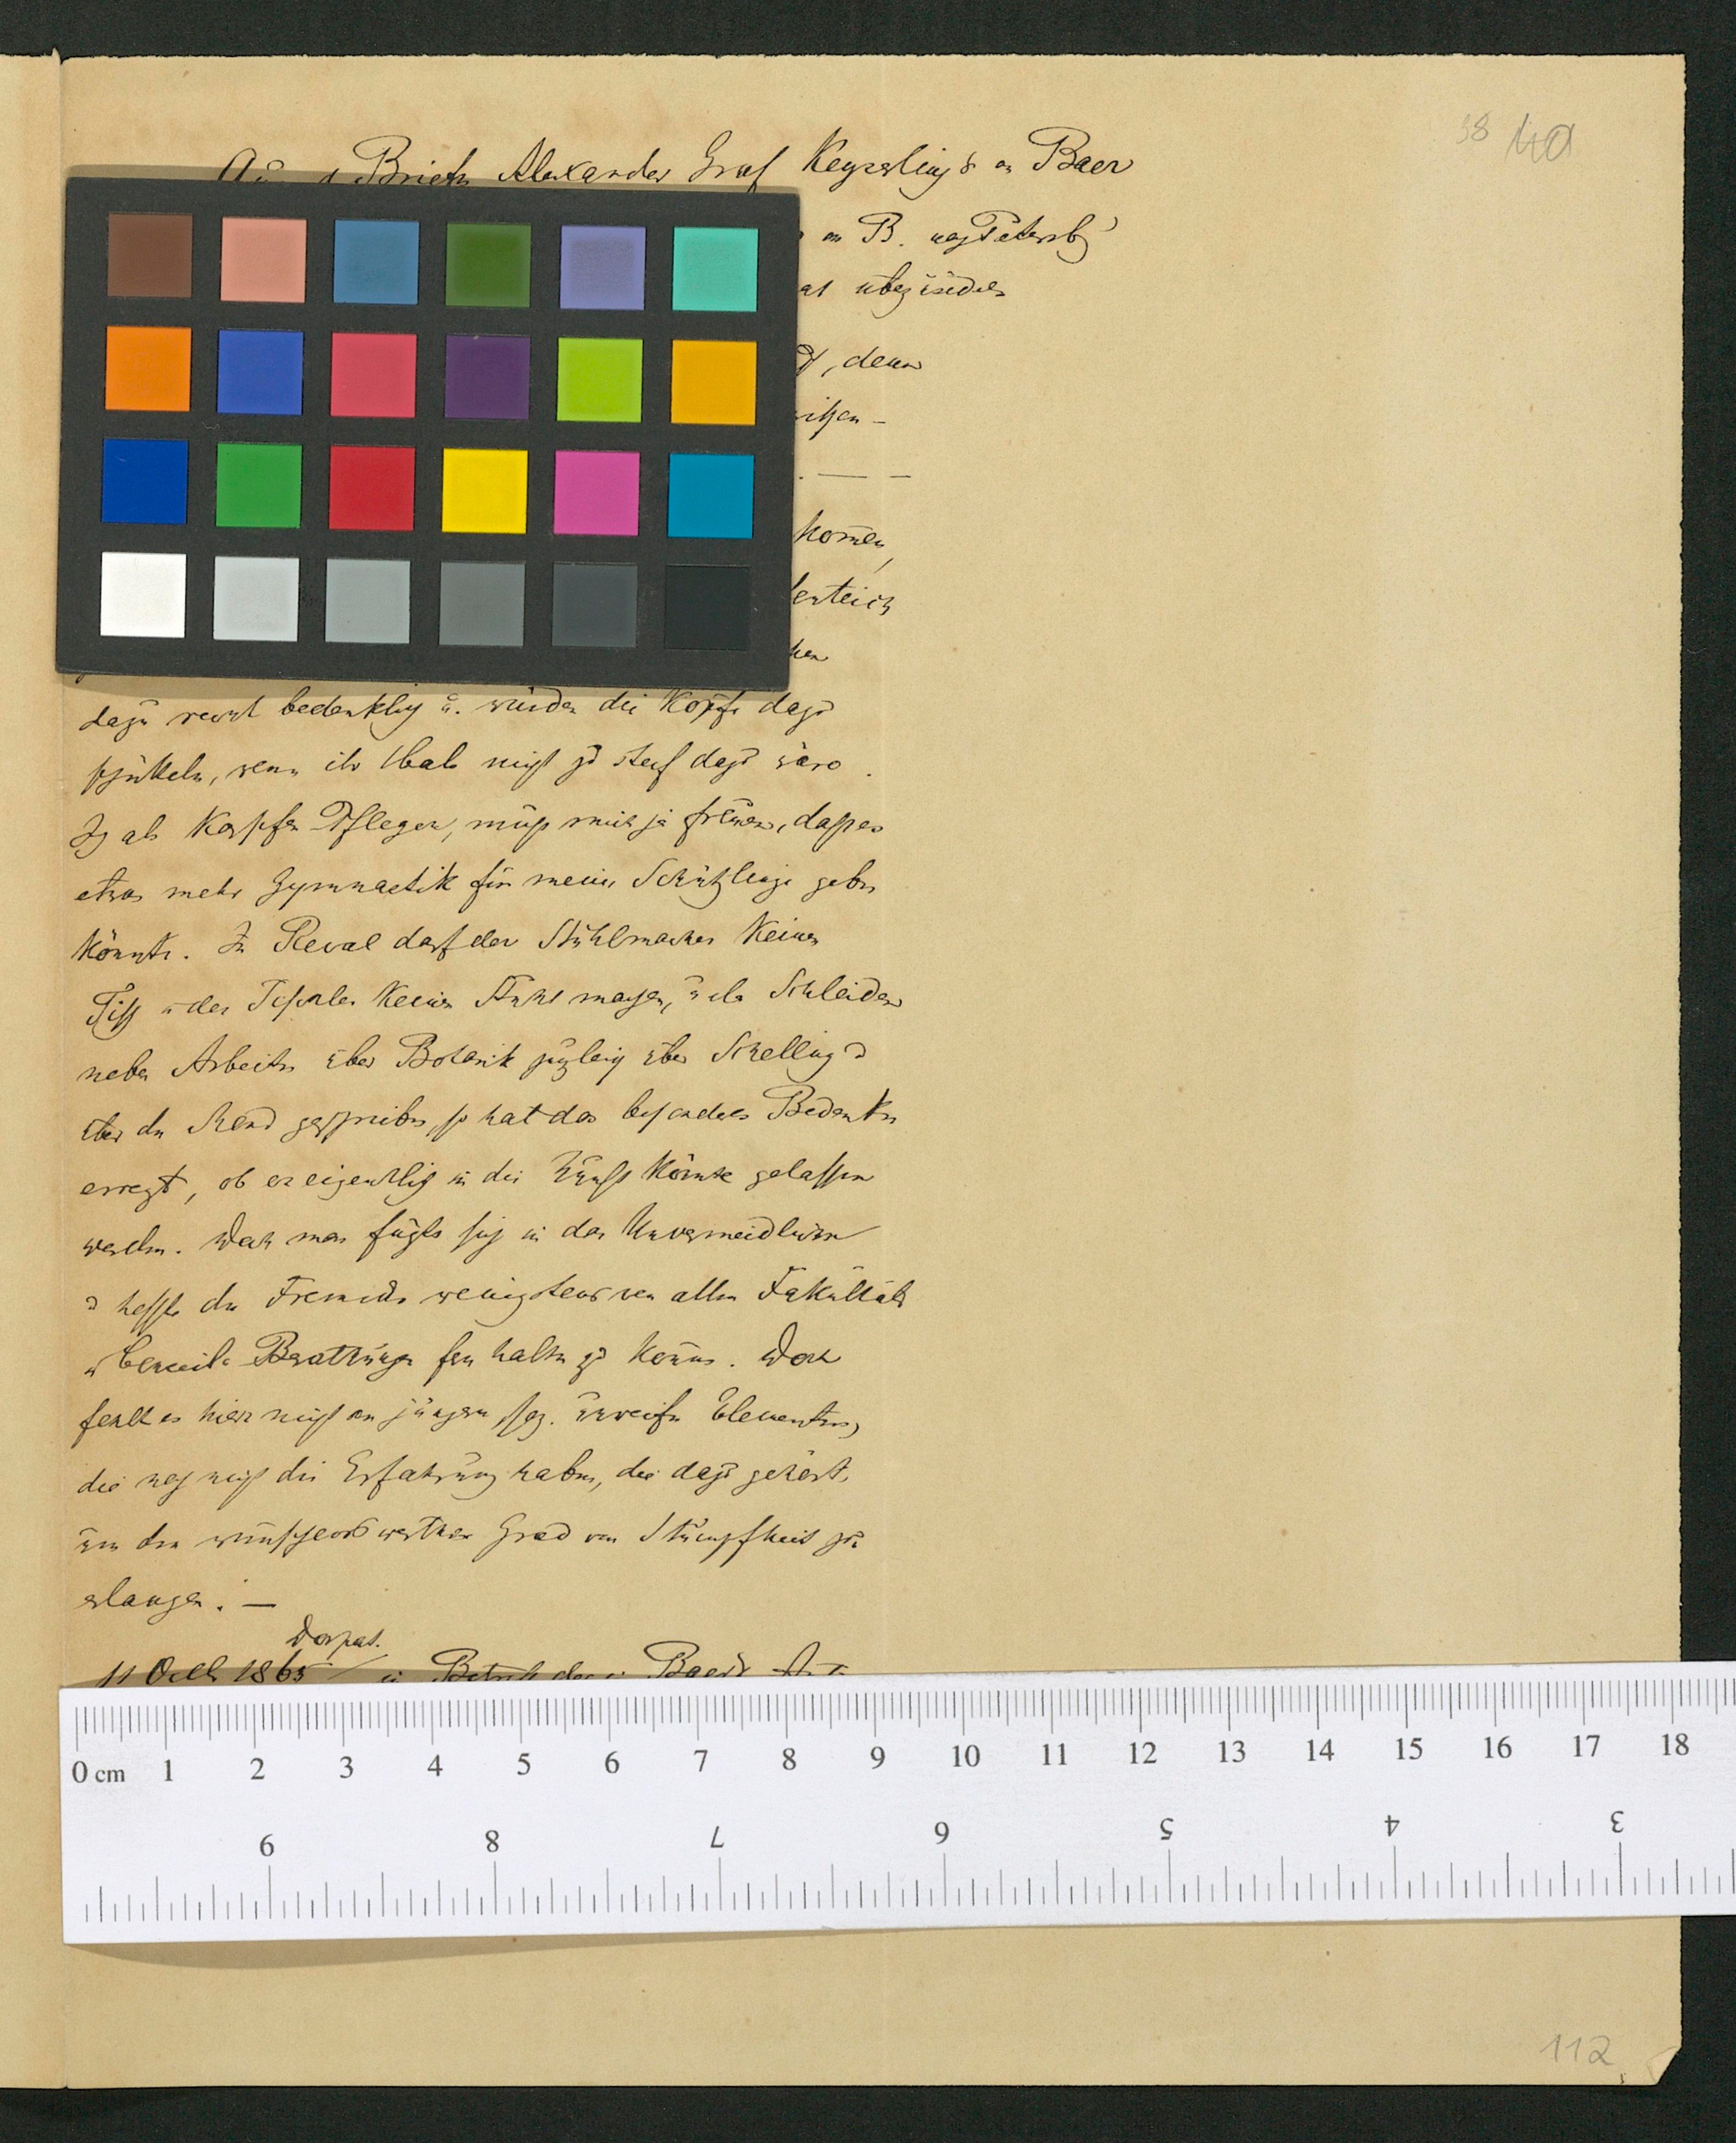 38 40
Aus d Briefen Alexander Graf Keyserlings an Baer
an B. nach Petersbg
, denn
kom̄en,
lenteich
dazu recht bedenklich u. würden die Köpfe dazu
schütteln, wenn ihr Hals nicht zu steif dazu wäre.
Ich als Karpfen Pfleger, muss mich ja freuen, dass es
etwas mehr Gymnastik für meine Schützlinge geben
könnte. In Reval darf der Stuhlmacher keinen
Tisch u der Tischler keinen Stuhl machen, u da Schleiden
neben Arbeiten über Botanik zugleich über Schelling u
über den Mond geschrieben, so hat das besonderes Bedenken
erregt, ob er eigentlich in die Zunft könnte gelassen
werden. Doch man fügte sich in das Unvermeidliche
u hoffte den Fremden wenigstens von allen Fakultäts
u Conseils Berathungen fern halten zu können. Doch
fehlt es hier nicht an jungen, sog. unreifen Elementen,
die noch nicht die Erfahrung haben, die dazu gehört,
um den wünschenswerthen Grad von Stumpfheit zu
erlangen. —
Dorpat.
11 Octb 1865 in Betreff der Baers
0 cm 1 2 3 4 5 6 7 8 9 10 11 12 13 14 15 16 17 18
9 8 7 6 5 4 3
112